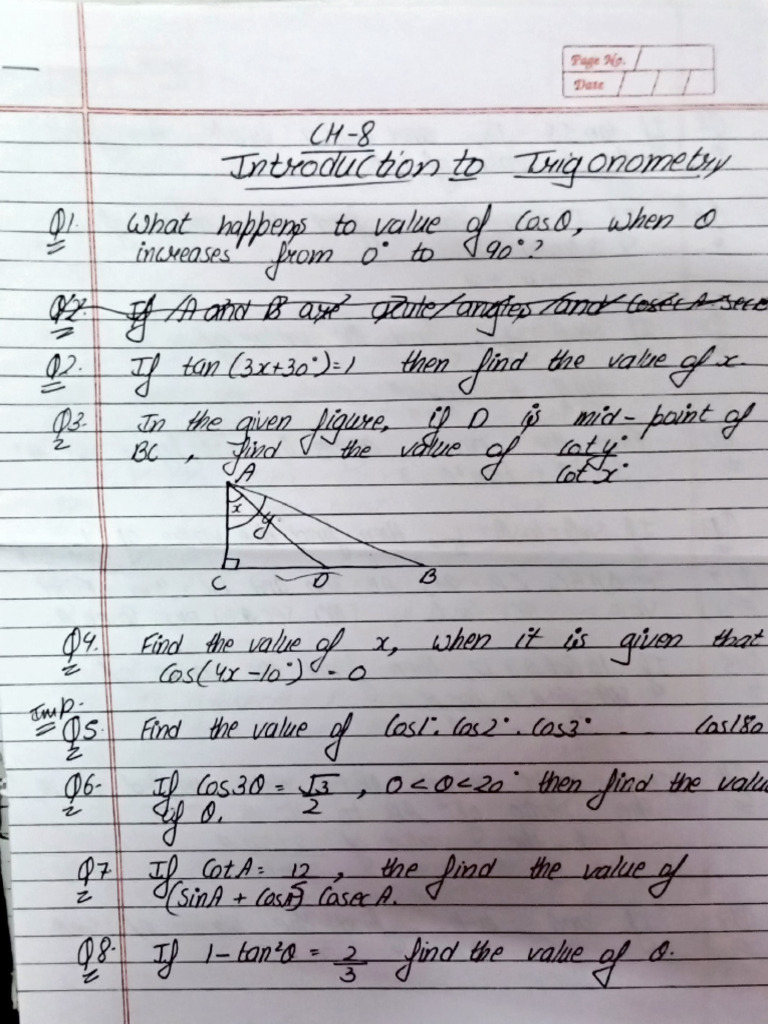 Page No.
Date
CH-8
Introduction to Trigonometry
Q1. What happens to value of Cosθ, when θ
increases from 0° to 90°?
Q2. If A and B are acute angles and Cosec A = sec B
Q2. If tan (3x+30°)=1 then find the value of x.
Q3. In the given figure, if D is mid-point of
BC, find the value of cot y°/cot x°
A
x
y
C D B
Q4. Find the value of x, when it is given that
Cos(4x-10°) = 0
Imp.
Q5. Find the value of Cos1°. Cos2°. Cos3° ... Cos180
Q6. If Cos3θ = √3/2, 0<θ<20° then find the value
of θ.
Q7. If CotA = 12/5, the find the value of
(sinA + CosA) CosecA.
Q8. If 1-tan²θ = 2/3 find the value of θ.